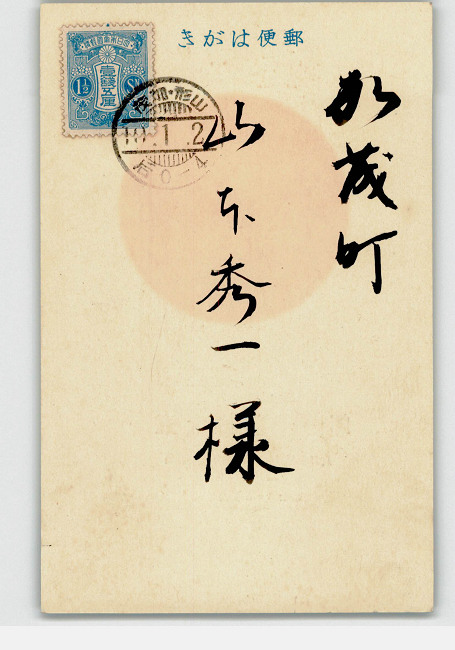 きがは便郵
壹錢五厘
1½ Sn
山形・加茂
10.1.2
后0-4
加茂町
山本秀一様